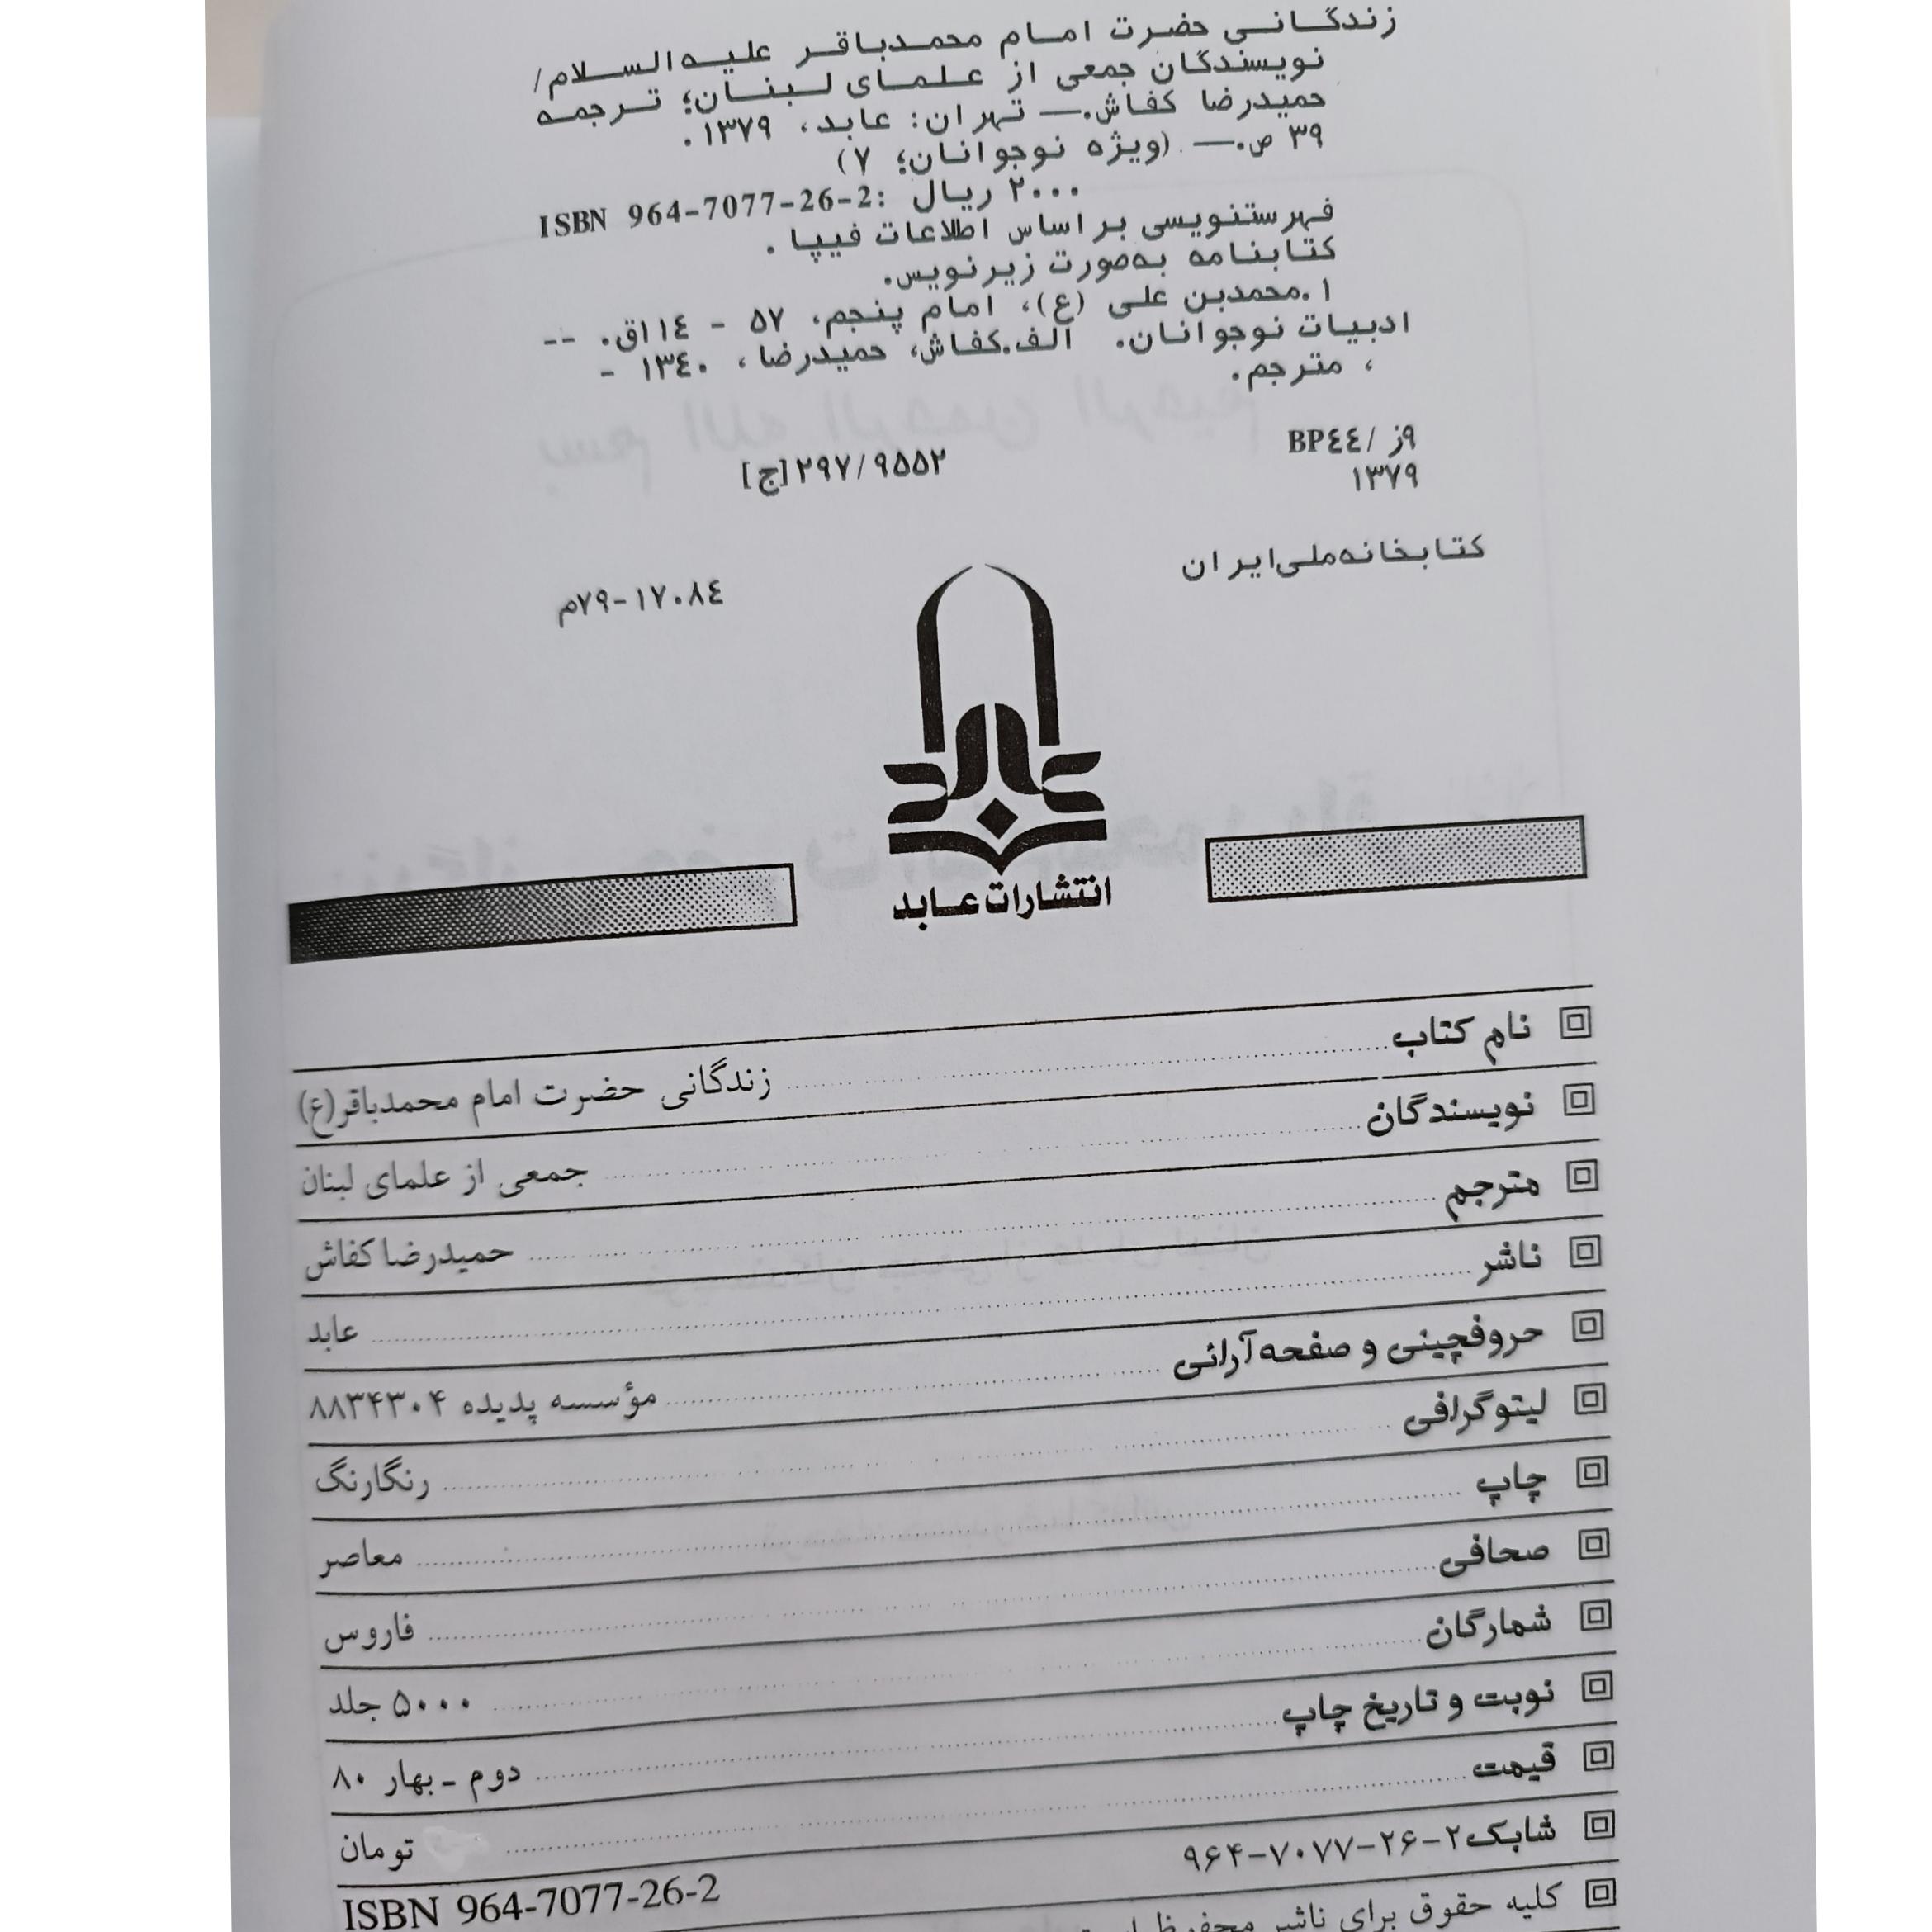 زندگانی حضرت امام محمدباقر علیه‌السلام/
نویسندگان جمعی از علمای لبنان؛ ترجمه
حمیدرضا کفاش.— تهران: عابد، ۱۳۷۹.
۳۹ ص.— (ویژه نوجوانان؛ ۷)
ISBN 964-7077-26-2: ۲۰۰۰ ریال
فهرستنویسی براساس اطلاعات فیپا.
کتابنامه به‌صورت زیرنویس.
۱.محمدبن علی (ع)، امام پنجم، ۵۷ - ۱۱٤ق. --
ادبیات نوجوانان. الف.کفاش، حمیدرضا، ۱۳٤۰ -
، مترجم.
BP٤٤/ ۹ز
۲۹۷/۹۵۵۲[ج]
۱۳۷۹
کتابخانه‌ملی‌ایران
۷۹-۱۷۰۸٤م
عابد
انتشارات عابد
نام کتاب ........ زندگانی حضرت امام محمدباقر(ع)
نویسندگان ........ جمعی از علمای لبنان
مترجم ........ حمیدرضا کفاش
ناشر ........ عابد
حروفچینی و صفحه‌آرائی ........ مؤسسه پدیده ۸۸۳۴۳۰۴
لیتوگرافی ........ رنگارنگ
چاپ ........ معاصر
صحافی ........ فاروس
شمارگان ........ ۵۰۰۰ جلد
نوبت و تاریخ چاپ ........ دوم ـ بهار ۸۰
قیمت ........ تومان
شابک ۲-۲۶-۷۰۷۷-۹۶۴
ISBN 964-7077-26-2
کلیه حقوق برای ناشر محفوظ